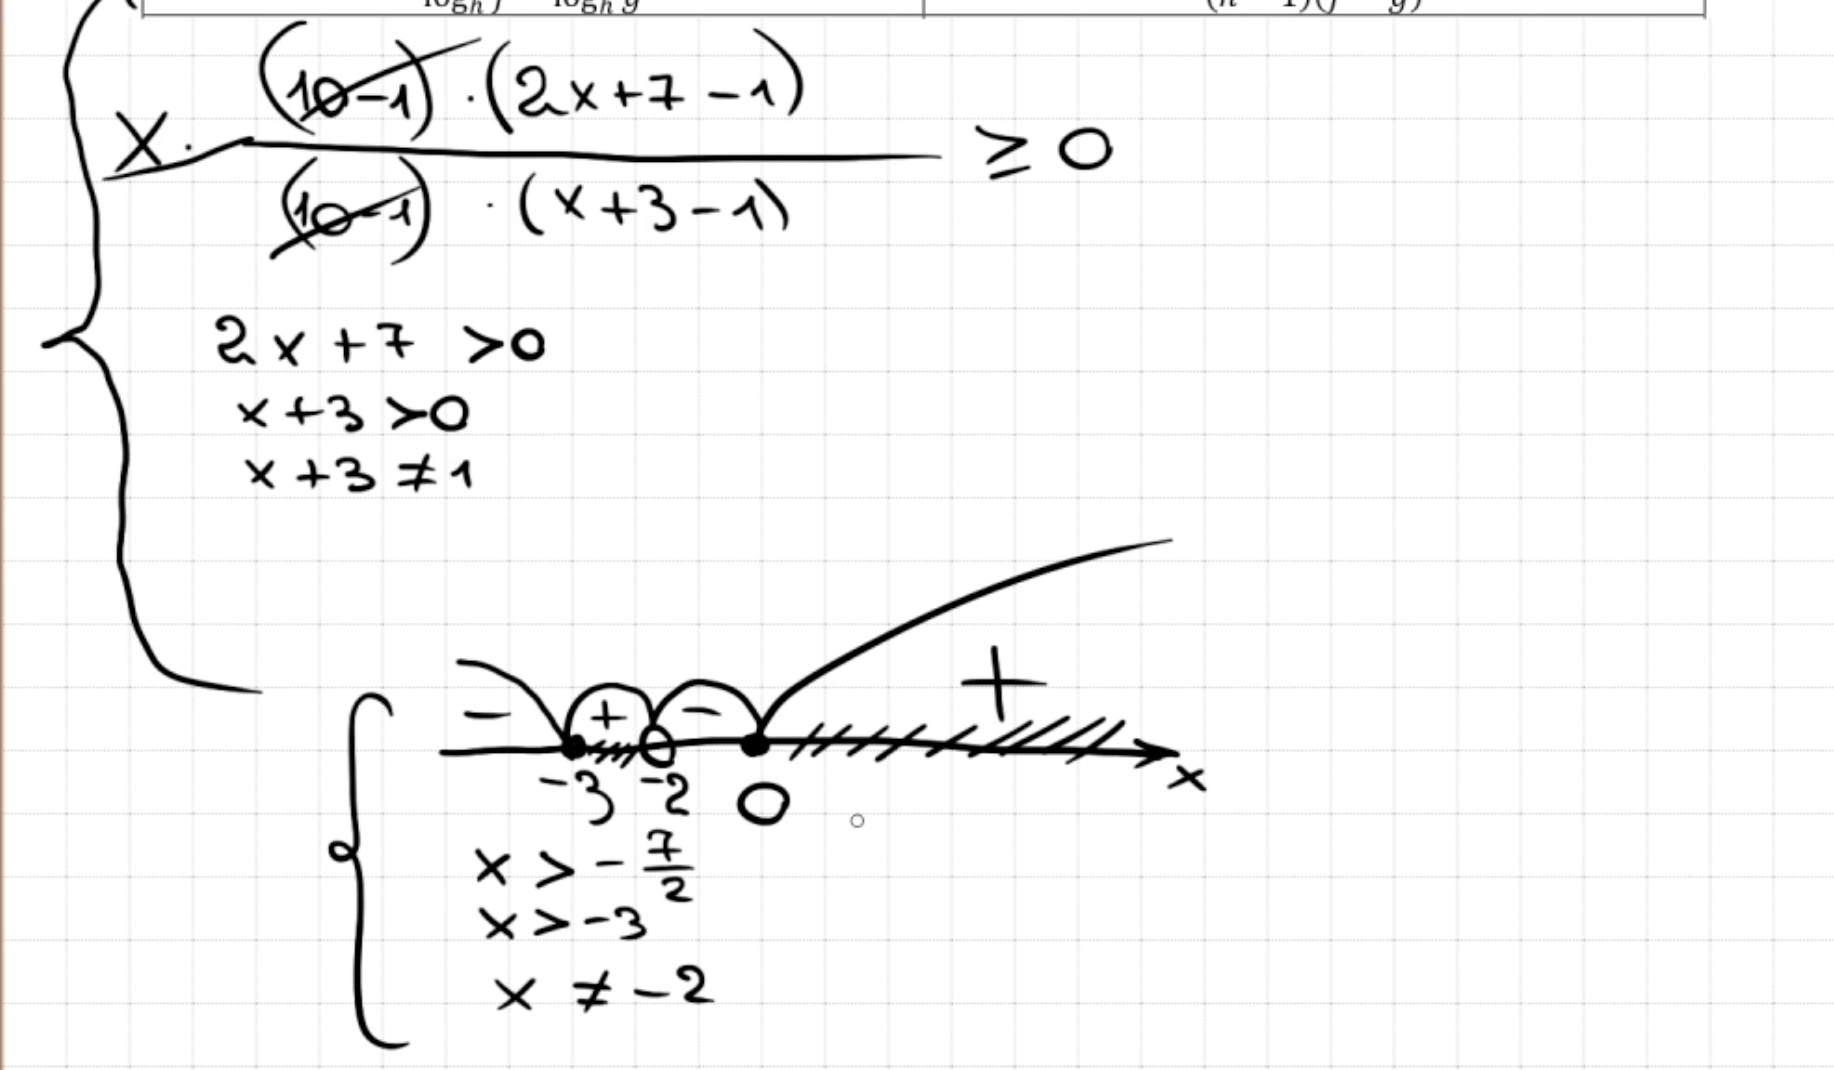 x · ((10-1) · (2x+7-1)) / ((10-1) · (x+3-1)) ≥ 0
2x+7 >0
x+3 >0
x+3 ≠ 1
- + - +
-3 -2 0 x
x > -7/2
x > -3
x ≠ -2